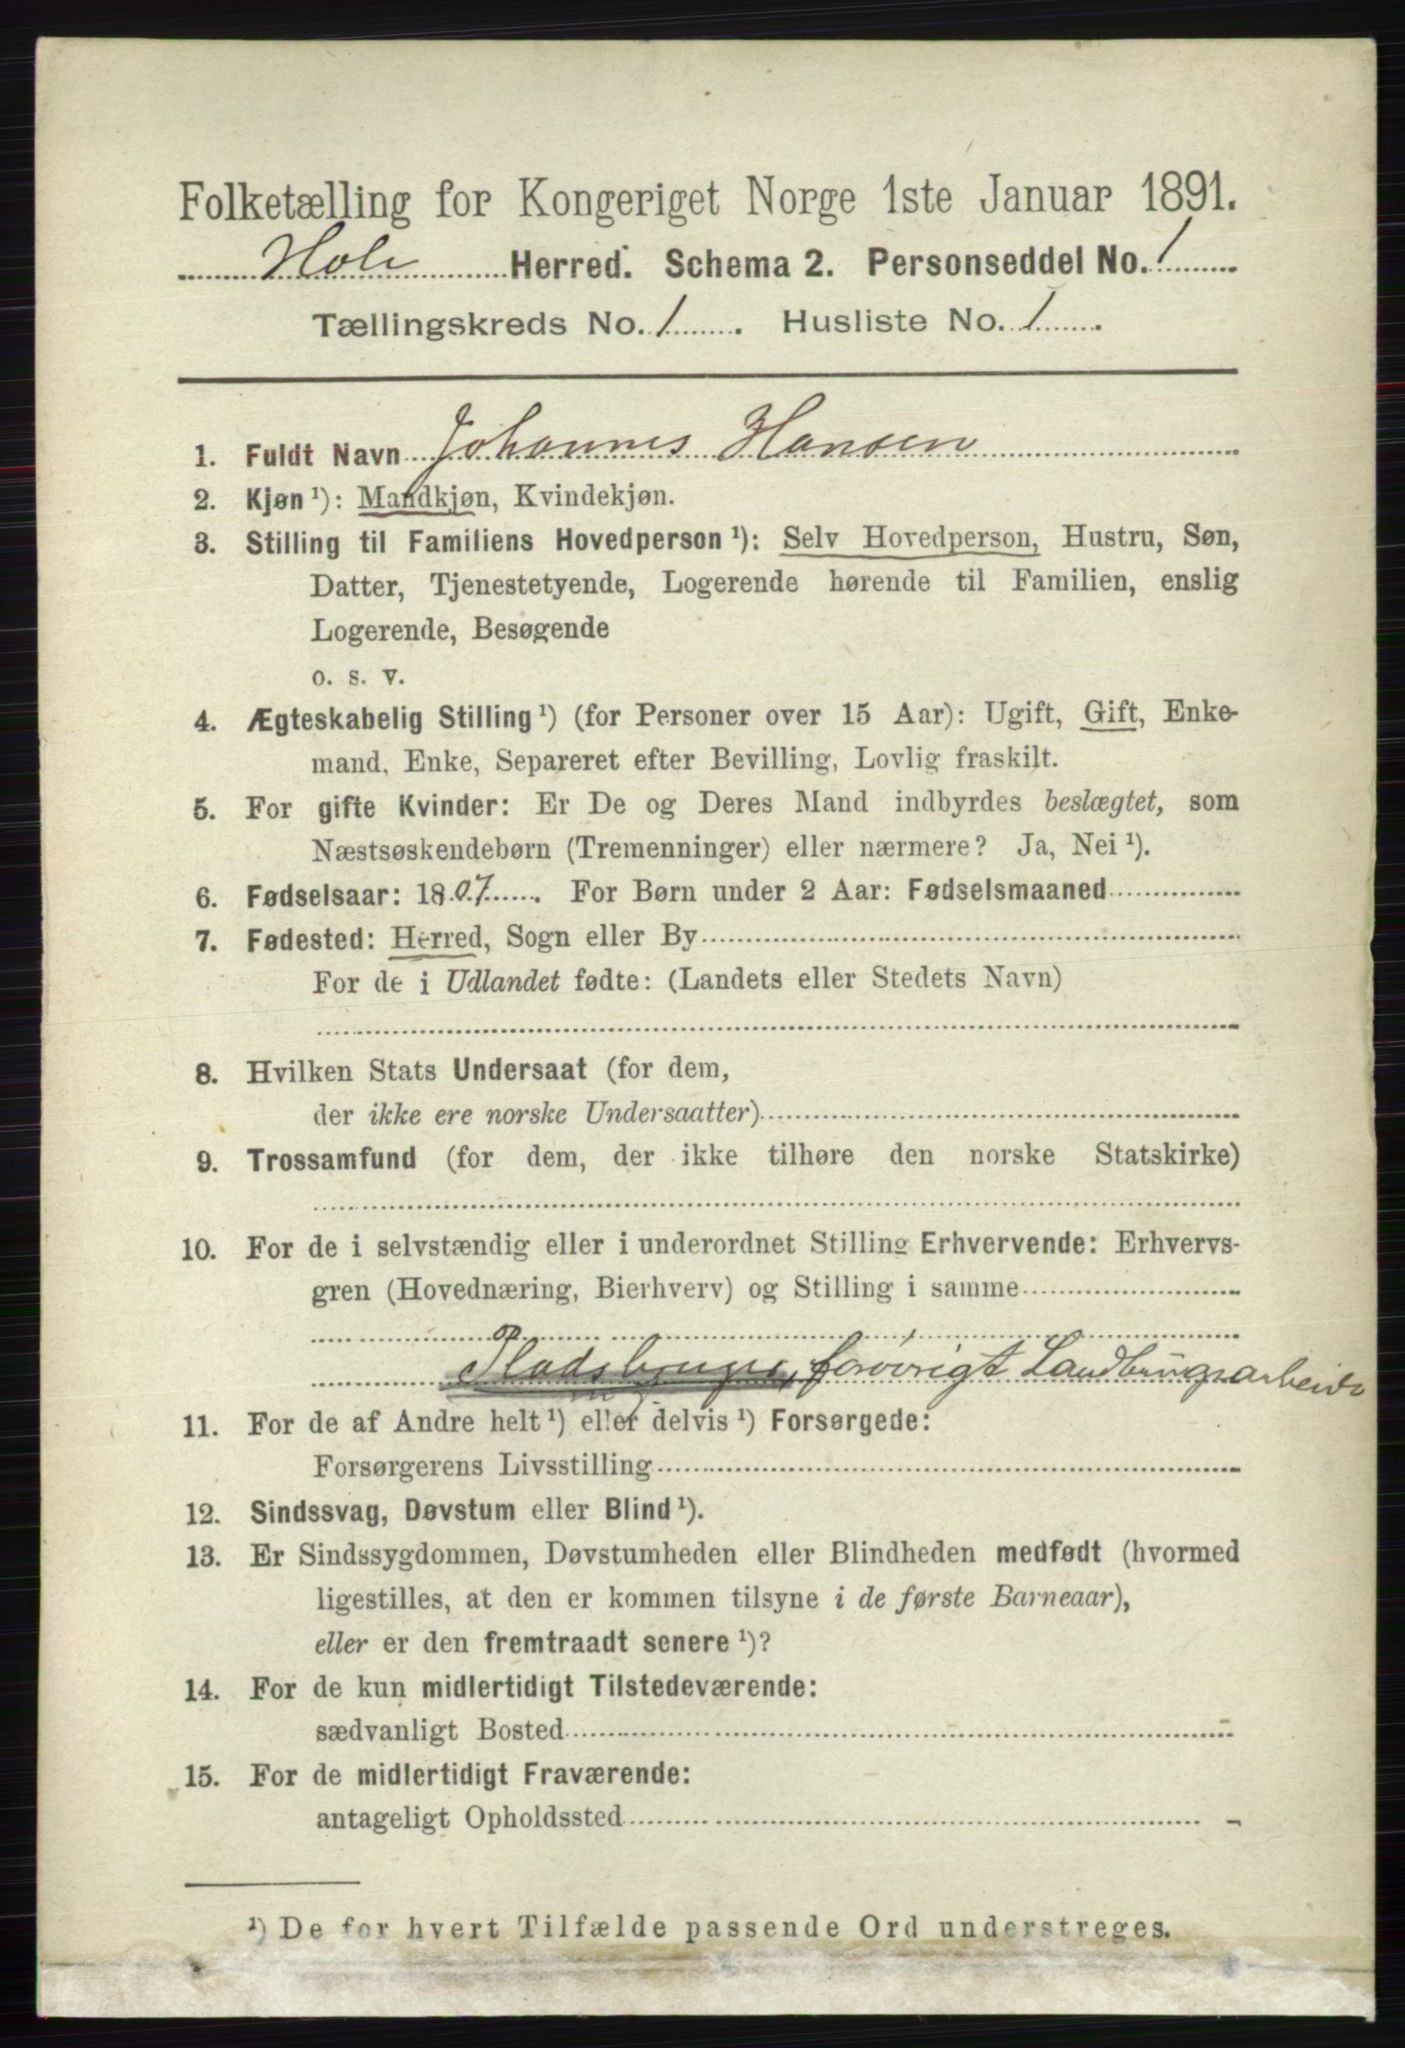 Folketælling for Kongeriget Norge 1ste Januar 1891.
Hole Herred. Schema 2. Personseddel No. 1
Tællingskreds No. 1. Husliste No. 1.
1. Fuldt Navn Johannes Hansen
2. Kjøn¹): Mandkjøn, Kvindekjøn.
3. Stilling til Familiens Hovedperson¹): Selv Hovedperson, Hustru, Søn,
Datter, Tjenestetyende, Logerende hørende til Familien, enslig
Logerende, Besøgende
o. s. v.
4. Ægteskabelig Stilling¹) (for Personer over 15 Aar): Ugift, Gift, Enke-
mand, Enke, Separeret efter Bevilling, Lovlig fraskilt.
5. For gifte Kvinder: Er De og Deres Mand indbyrdes beslægtet, som
Næstsøskendebørn (Tremenninger) eller nærmere? Ja, Nei¹).
6. Fødselsaar: 1807. For Børn under 2 Aar: Fødselsmaaned
7. Fødested: Herred, Sogn eller By
For de i Udlandet fødte: (Landets eller Stedets Navn)
8. Hvilken Stats Undersaat (for dem,
der ikke ere norske Undersaatter)
9. Trossamfund (for dem, der ikke tilhøre den norske Statskirke)
10. For de i selvstændig eller i underordnet Stilling Erhvervende: Erhvervs-
gren (Hovednæring, Bierhverv) og Stilling i samme
Pladsbruger, forøvrigt Landbrugsarbeide
11. For de af Andre helt¹) eller delvis¹) Forsørgede:
Forsørgerens Livsstilling
12. Sindssvag, Døvstum eller Blind¹).
13. Er Sindssygdommen, Døvstumheden eller Blindheden medfødt (hvormed
ligestilles, at den er kommen tilsyne i de første Barneaar),
eller er den fremtraadt senere¹)?
14. For de kun midlertidigt Tilstedeværende:
sædvanligt Bosted
15. For de midlertidigt Fraværende:
antageligt Opholdssted
¹) De for hvert Tilfælde passende Ord understreges.